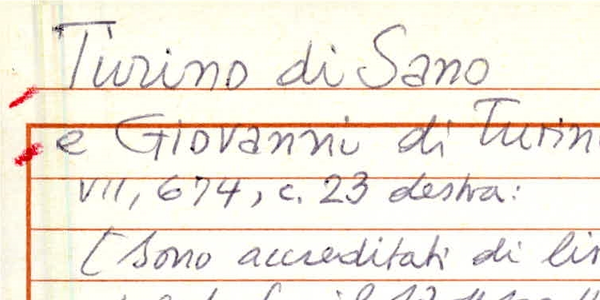 Turino di Sano
e Giovanni di Turin
VII, 674, c. 23 destra:
[ sono accreditati di lir